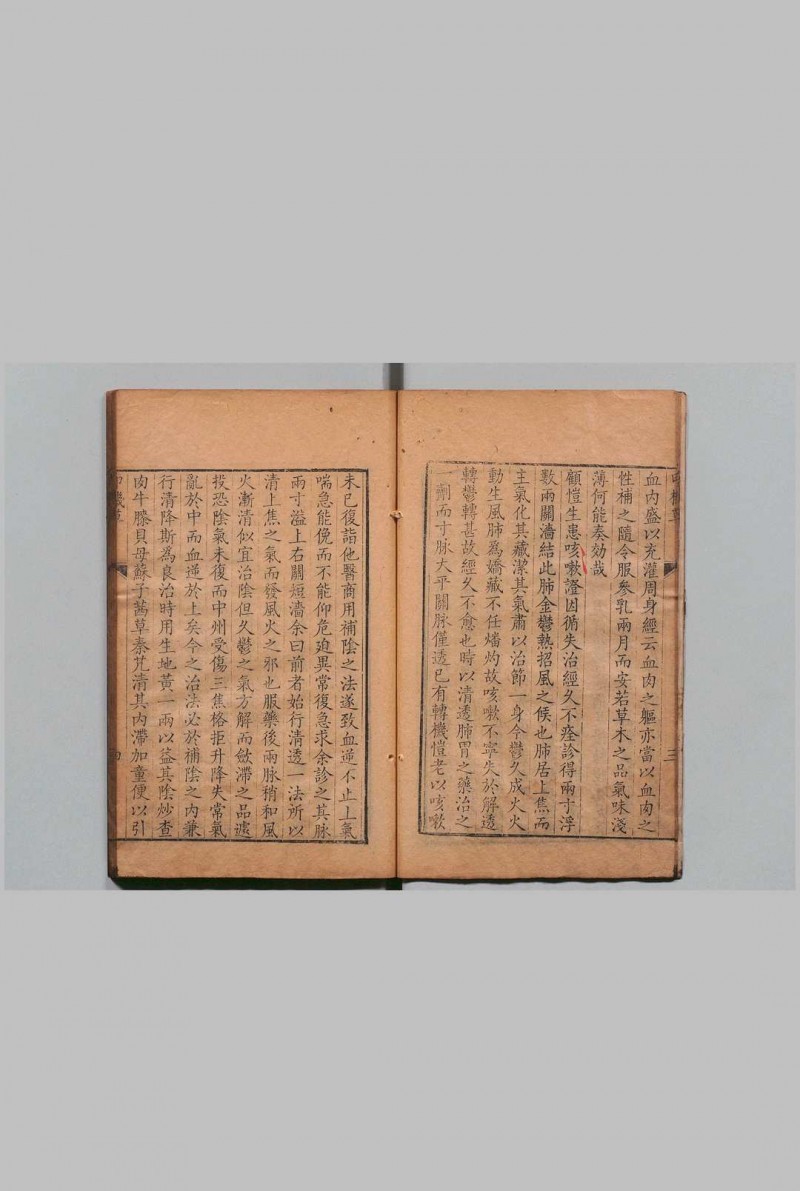 血內盛以充灌周身經云血肉之軀亦當以血肉之
性補之隨令服參乳兩月而安若草木之品氣味淺
薄何能奏効哉
顧愷生患咳嗽證因循失治經久不痊診得兩寸浮
數兩關濇結此肺金鬱熱招風之候也肺居上焦而
主氣化其藏潔其氣肅以治節一身今鬱久成火火
動生風肺為嬌藏不任燔灼故咳嗽不寧失於解透
轉鬱轉甚故經久不愈也時以清透肺胃之藥治之
一劑而寸脉大平關脉僅透已有轉機愷老以咳嗽
三
未已復詣他醫商用補陰之法遂致血逆不止上氣
喘急能俛而不能仰危迫異常復急求余診之其脉
兩寸溢上右關短濇余曰前者始行清透一法所以
清上焦之氣而發風火之邪也服藥後兩脉稍和風
火漸清似宜治陰但久鬱之氣方解而斂滯之品遽
投恐陰氣未復而中州受傷三焦格拒升降失常氣
亂於中而血逆於上矣令之治法必於補陰之內兼
行清降斯為良治時用生地黃一兩以益其陰炒查
肉牛膝貝母蘇子茜草秦艽清其內滯加童便以引